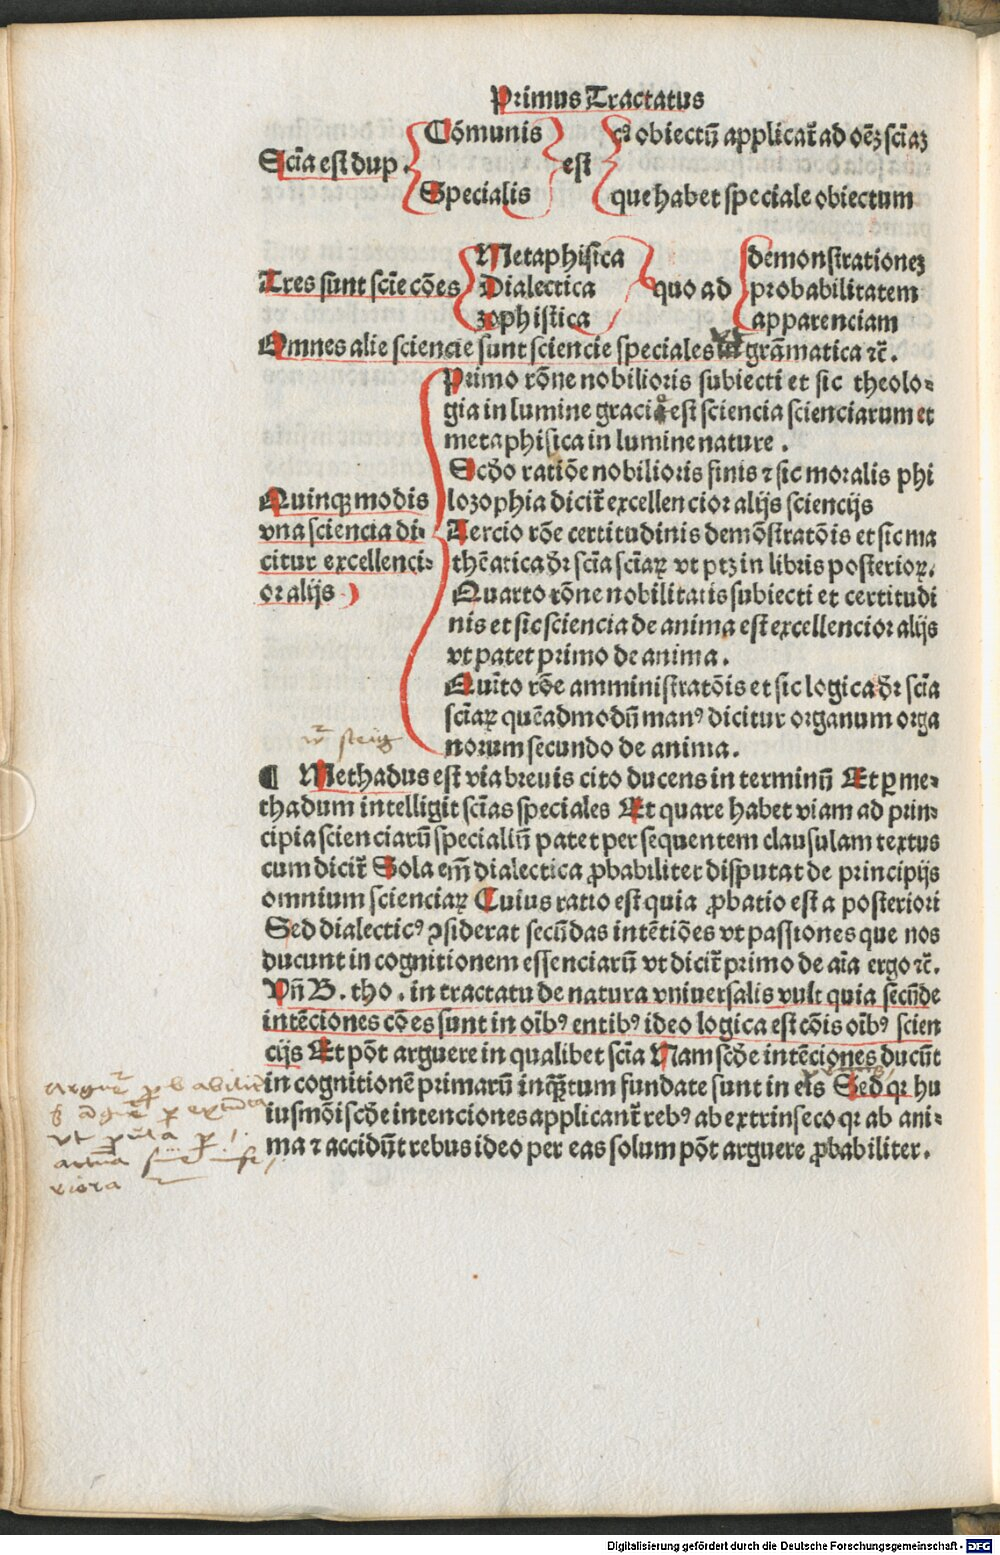 Primus Tractatus
Cõmunis cꝰ obiectũ applicat᷑ ad oẽʒ scĩaʒ
Scĩa est dup. est
Specialis que habet speciale obiectum
Metaphisica demonstrationeʒ
Tres sunt sciẽ cões Dialectica quo ad probabilitatem
zophistica apparenciam
Omnes alie sciencie sunt sciencie speciales grãmatica ⁊c̃.
Primo rõne nobilioris subiecti et sic theolo⸗
gia in lumine gracie est sciencia scienciarum et
metaphisica in lumine nature .
Scd̵o ratiõe nobilioris finis ⁊ sic moralis phi
Quinqꝫ modis lozophia dicit᷑ excellencior alijs sciencijs
vna sciencia di⸗ Tercio rõe certitudinis demõstratõis et sic ma
citur excellenci⸗ thẽatica dr̃ scĩa scĩaꝝ vt ptʒ in libris posterioꝝ.
or alijs Quarto rõne nobilitatis subiecti et certitudi
nis et sic sciencia de anima est excellencior alijs
vt patet primo de anima .
Quĩto rõe amministratõis et sic logica dr̃ scĩa
scĩaꝝ quẽadmodũ manꝰ dicitur organum orga
norum secundo de anima .
¶ Methadus est via breuis cito ducens in terminũ Et ꝑ me⸗
thadum intelligit scĩas speciales Et quare habet viam ad prin⸗
cipia scienciarũ specialiũ patet per sequentem clausulam textus
cum dicit᷑ Sola em̃ dialectica ꝓbabiliter disputat de principijs
omnium scienciaꝝ Cuius ratio est quia ꝓbatio est a posteriori
Sed dialecticꝰ ↄsiderat secũdas intẽtiões vt passiones que nos
ducunt in cognitionem essenciarũ vt dicit᷑ primo de aĩa ergo ⁊c̃.
Vñ B . tho . in tractatu de natura vniuersalis vult quia secũde
intẽciones cões sunt in oĩbꝰ entibꝰ ideo logica est cõis oĩbꝰ scien
cijs Et põt arguere in qualibet scĩa Nam scd̵e intẽciones ducũt
in cognitionẽ primarũ inqꝫtum fundate sunt in eis Sed qꝛ hu
iusmõi scd̵e intenciones applicant᷑ rebꝰ ab extrinseco qꝛ ab ani⸗
ma ⁊ accidũt rebus ideo per eas solum põt arguere ꝓbabiliter .
Digitalisierung gefördert durch die Deutsche Forschungsgemeinschaft - DFG